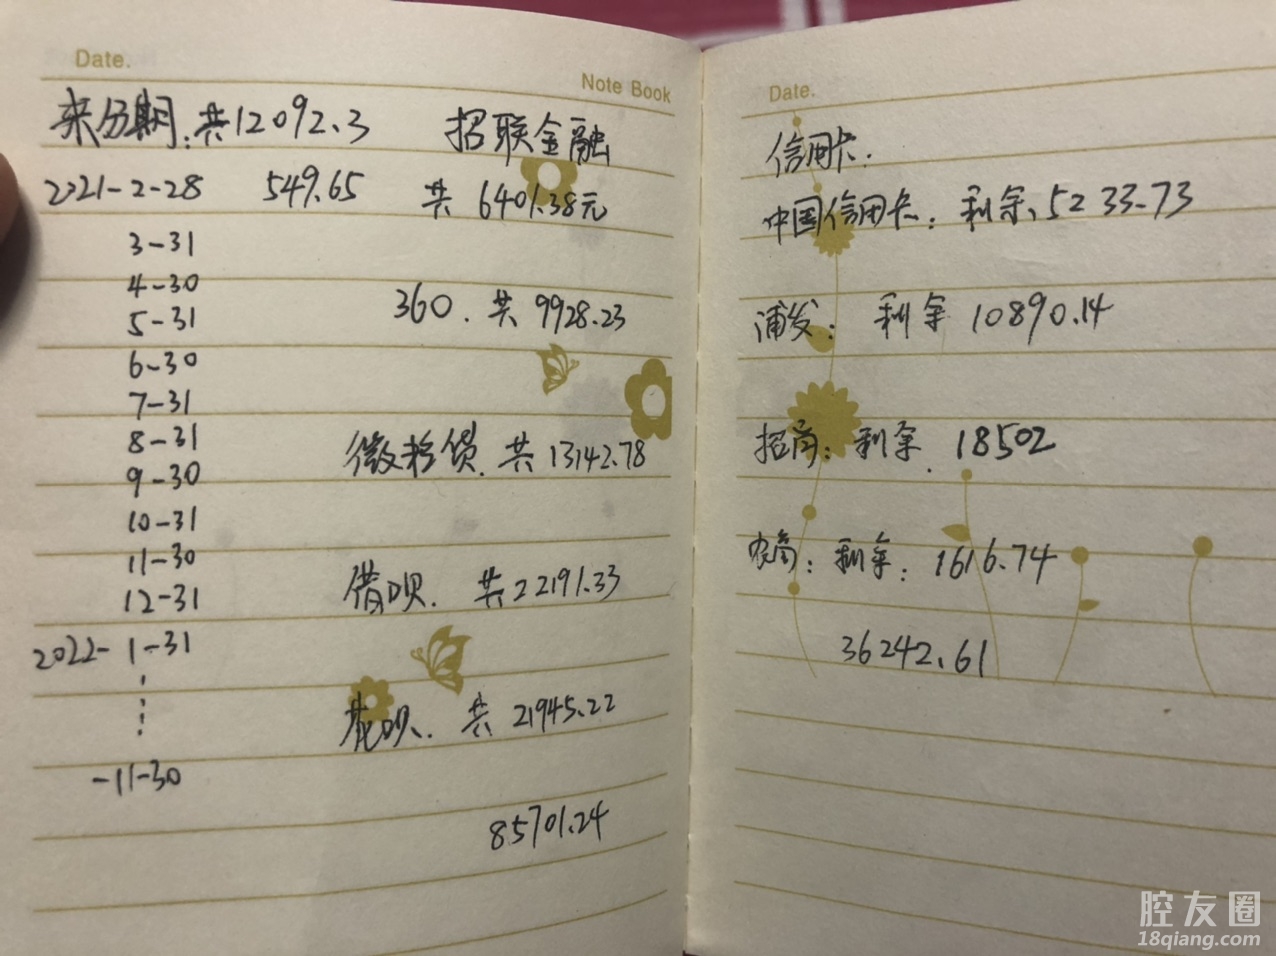 Date.
Note Book
来分期:共12092.3
招联金融
2021-2-28 549.65
共 6401.38元
3-31
4-30
360. 共 9928.23
5-31
6-30
7-31
8-31
微粒贷. 共 13142.78
9-30
10-31
11-30
借呗. 共22191.33
12-31
2022- 1-31
花呗. 共 21945.22
-11-30
85701.24
Date.
信用卡:
中国信用卡: 剩余:5233.73
浦发: 剩余 10890.14
招商: 剩余. 18502
农商: 剩余: 1616.74
36242.61
腔友圈
18qiang.com